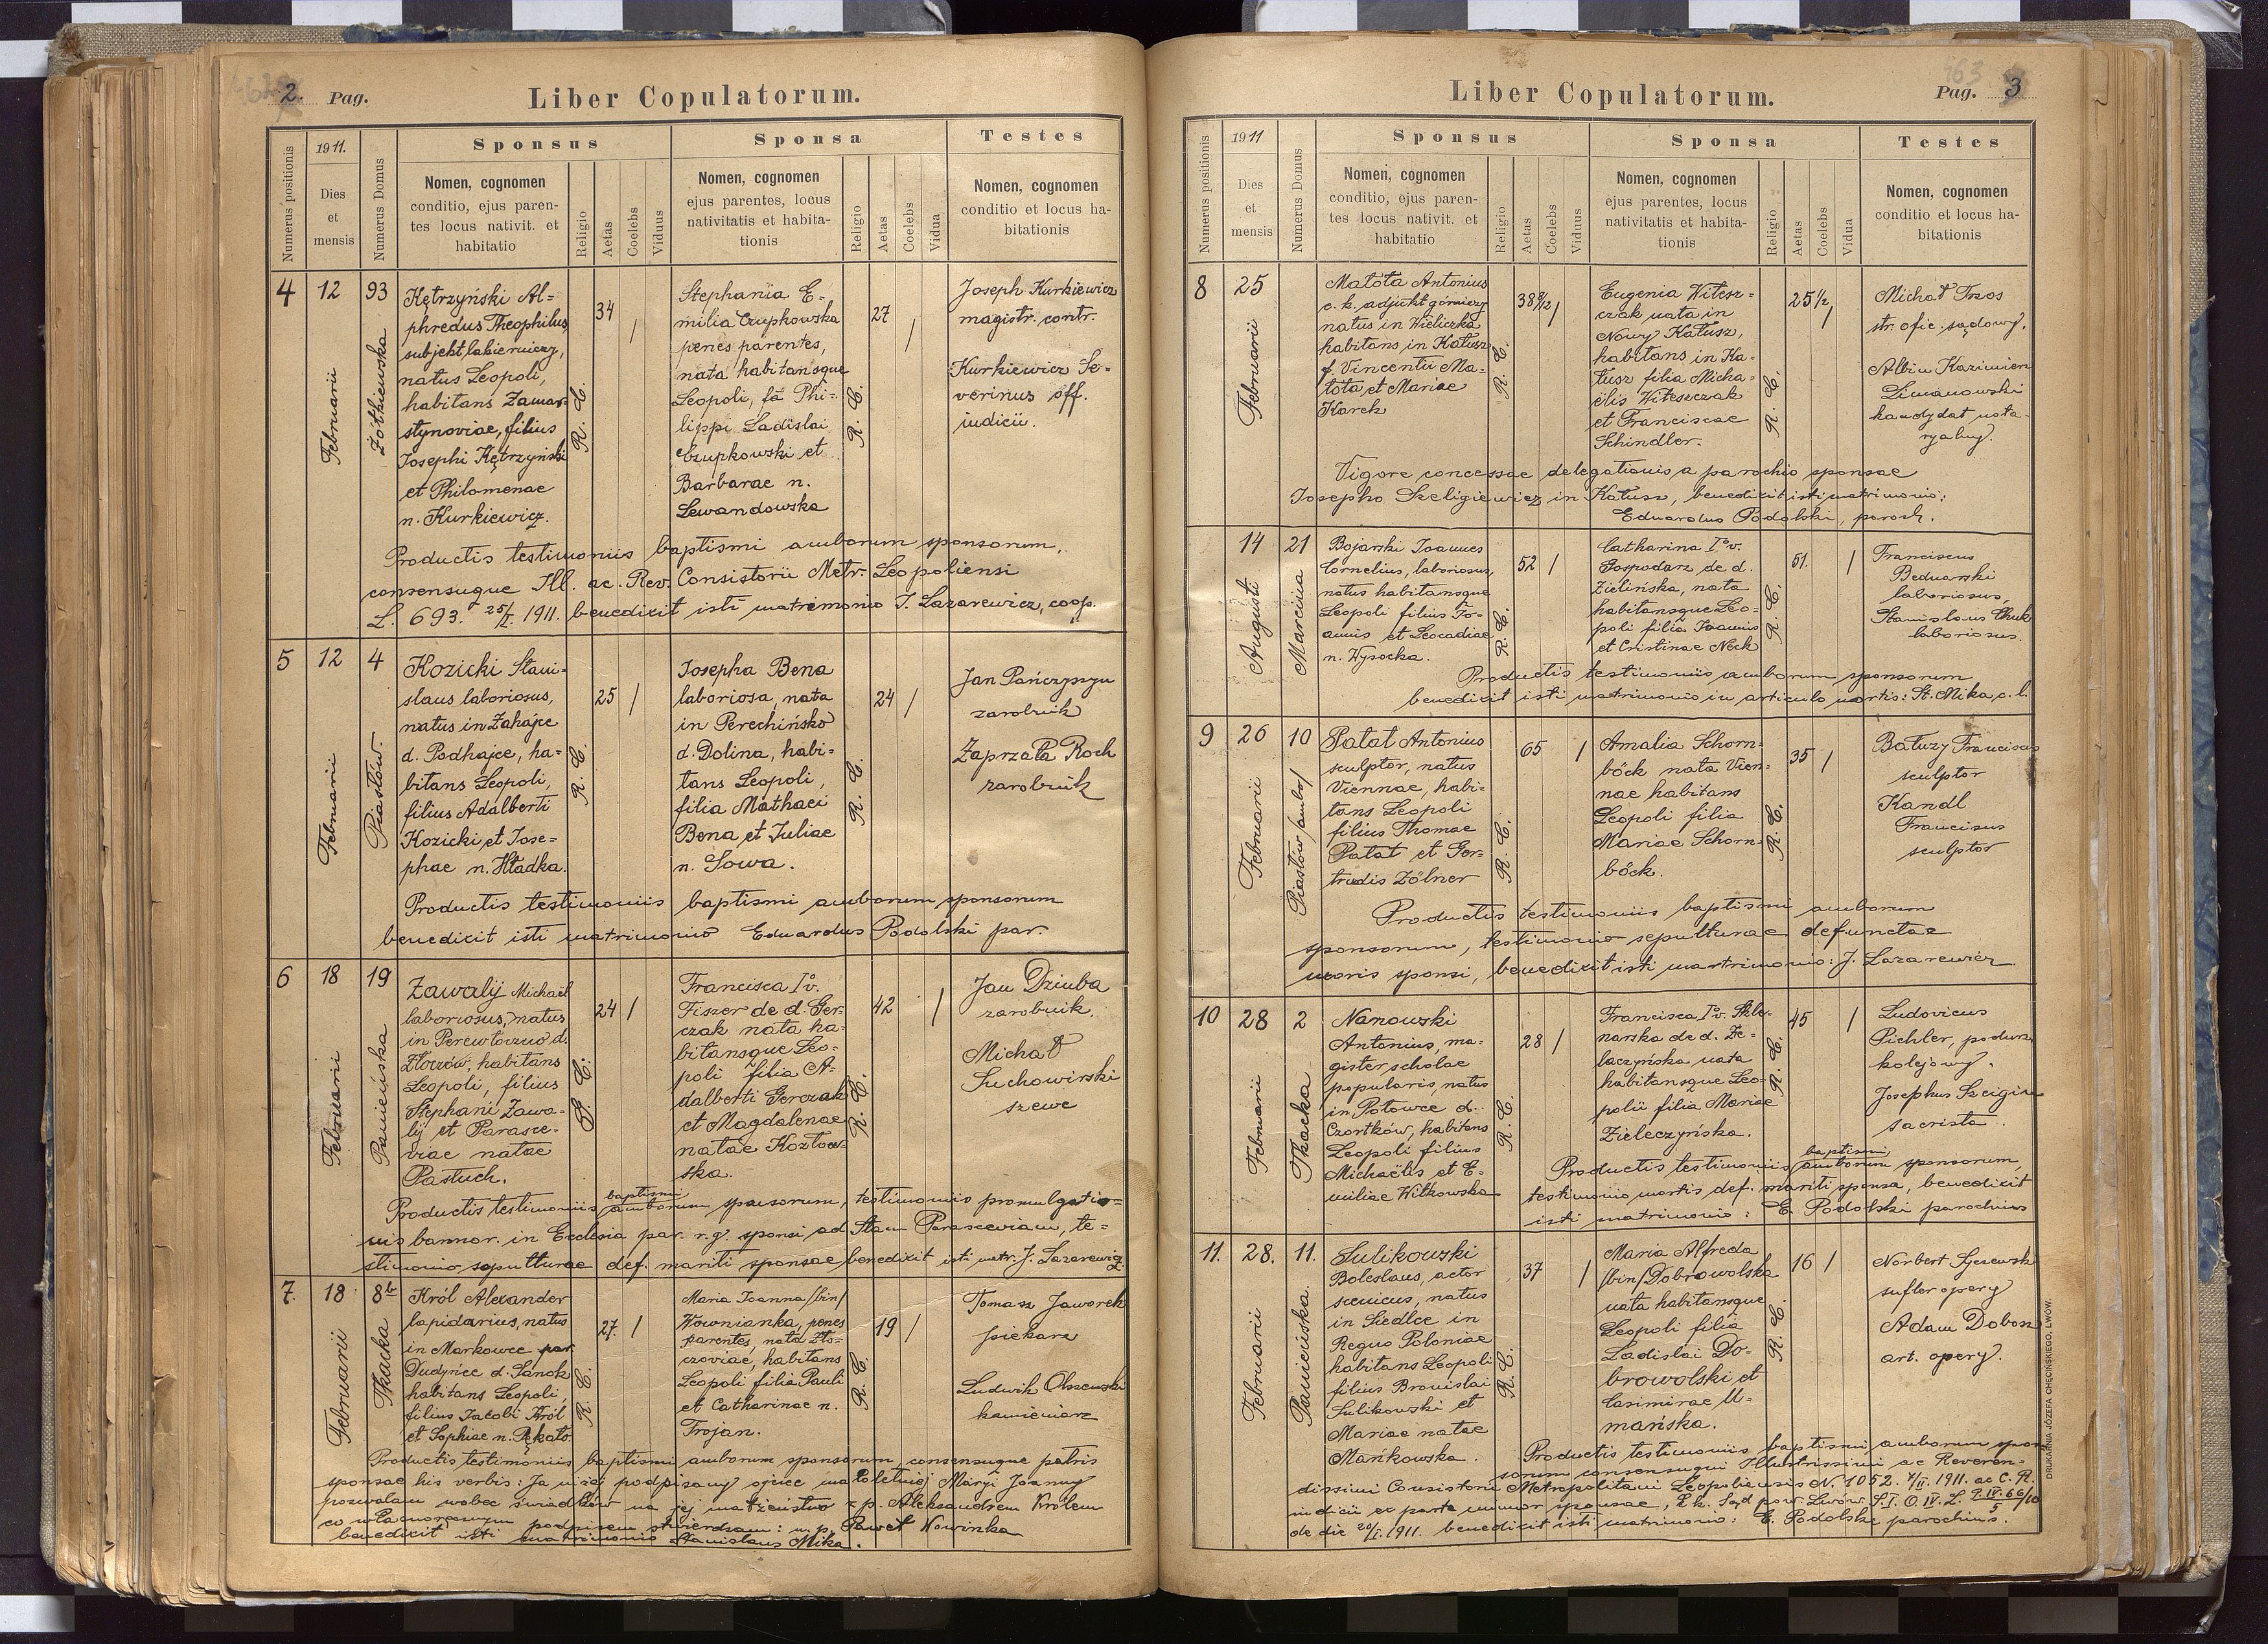 2. Pag.
Liber Copulatorum.
Numerus positionis
1911.
Dies
et
mensis
Numerus Domus
Sponsus
Nomen, cognomen
conditio, ejus paren-
tes locus nativit. et
habitatio
Religio
Aetas
Coelebs
Viduus
Sponsa
Nomen, cognomen
ejus parentes, locus
nativitatis et habita-
tionis
Religio
Aetas
Coelebs
Vidua
Testes
Nomen, cognomen
conditio et locus ha-
bitationis
4
12
Februarii
93
Żółkiewska
Kętrzyński Al-
phredus Theophilus,
subjekt lakierniczy,
natus Leopoli,
habitans Zamar-
stynoviae, filius
Josephi Kętrzyński
et Philomenae
n. Kurkiewicz.
R. C.
34
/
Stephania E-
milia Czupkowska
penes parentes,
nata habitansque
Leopoli, fa Phi-
lippi Ladislai
Czupkowski et
Barbarae n.
Lewandowska
R. C.
27
/
Joseph Kurkiewicz
magistr. contr.
Kurkiewicz Se-
verinus off.
iudicii.
Productis testimoniis baptismi amborum sponsorum,
consensuque Ill. ac. Rev. Consistorii Metr. Leopoliensi
L. 693. 25/I. 1911. benedixit isti matrimonio J. Lazarewicz, coop.
5
12
Februarii
4
Piastów.
Kozicki Stani-
slaus laboriosus,
natus in Zahajce
d. Podhajce, ha-
bitans Leopoli,
filius Adalberti
Kozicki et Jose-
phae n. Hładka.
R. C.
25
/
Josepha Bena
laboriosa, nata
in Perechińsko
d. Dolina, habi-
tans Leopoli,
filia Mathaei
Bena et Juliae
n. Sowa.
R. C.
24
/
Jan Pańczyszyn
zarobnik
Zaprzała Roch
zarobnik
Productis testimoniis baptismi amborum sponsorum
benedixit isti matrimonio Eduardus Podolski par.
6
18
Februarii
19
Panieńska
Zawalij Michael
laboriosus, natus
in Perewłoczno d.
Złoczów, habitans
Leopoli, filius
Stephani Zawa-
lij et Parasce-
viae natae
Pastuch.
24
/
Francisca Iº v.
Fiszer de d. Ger-
czak nata ha-
bitansque Leo-
poli filia A-
dalberti Gerczak
et Magdalenae
natae Kozłow-
ska.
R. C.
42
/
Jan Dziuba
zarobnik.
Michał
Suchowirski
szewc
Productis testimoniis baptismi amborum sponsorum, testimoniis promulgatio-
nis bannor. in Ecclesia par. r. g. sponsi ad Stam Parasceviam, te-
stimonio sepulturae def. mariti sponsae benedixit isti matr. J. Lazarewicz
7.
18
Februarii
8b
Tkacka
Król Alexander
lapidarius, natus
in Markowce par.
Dudyńce d. Sanok
habitans Leopoli,
filius Jacobi Król
et Sophiae n. Pękato.
R. C.
27.
/
Maria Joanna /bin/
Nownianka, penes
parentes, nata Zło-
czoviae, habitans
Leopoli filia Pauli
et Catharinae n.
Trojan.
R. C.
19
/
Tomasz Jaworek
piekarz
Ludwik Olszewski
kamieniarz
Productis testimoniis baptismi amborum sponsorum, consensuque patris
sponsae his verbis: Ja niżej podpisany ojciec małoletniej Marji Joanny
pozwalam wobec świadków na jej małżeństwo z p. Aleksandrem Królem
co własnoręcznym podpisem stwierdzam: m. p. Paweł Nowinka
benedixit isti matrimonio Stanislaus Mika.
Liber Copulatorum.
Pag. 3
Numerus positionis
1911
Dies
et
mensis
Numerus Domus
Sponsus
Nomen, cognomen
conditio, ejus paren-
tes locus nativit. et
habitatio
Religio
Aetas
Coelebs
Viduus
Sponsa
Nomen, cognomen
ejus parentes, locus
nativitatis et habita-
tionis
Religio
Aetas
Coelebs
Vidua
Testes
Nomen, cognomen
conditio et locus ha-
bitationis
8
25
Februarii
Matota Antonius
c. k. adjunkt górniczy
natus in Wieliczka
habitans in Kałusz
f. Vincentii Ma-
tota et Mariae
Karch
R. C.
/
Eugenia Witesz-
czak nata in
Nowy Kałusz,
habitans in Ka-
łusz filia Micha-
ëlis Witeszczak
et Franciscae
Schindler.
R. C.
25 1/2
/
Michał Trzos
str. ofic. sądowy.
Albin Kazimierz
Limanowski
kandydat nota-
ryalny.
Vigore concessae delegationis a parochio sponsae
Josepho Szeligiewicz in Kałusz, benedixit isti matrimonio:
Eduardus Podolski, paroch.
14
Augusti
21
Marcina
Bojarski Joannes
Cornelius, laboriosus,
natus habitansque
Leopoli filius Jo-
annis et Leocadiae
n. Wysocka.
R. C.
52
/
Catharina Iº v.
Gospodarz de d.
Zielińska, nata
habitansque Leo-
poli filia Joannis
et Cristinae Neck
R. C.
51.
/
Franciscus
Bednarski
laboriosus,
Stanislaus Chuk
laboriosus.
Productis testimoniis amborum sponsorum
benedixit isti matrimonio in articulo mortis: St. Mika c. l.
9
26
Februarii
10
Piastów /ambo/
Patat Antonius
sculptor, natus
Viennae, habi-
tans Leopoli
filius Thomae
Patat et Ger-
trudis Zölner
R. C.
65
/
Amalia Schorn-
böck nata Vien-
nae habitans
Leopoli filia
Mariae Schorn-
böck.
R. C.
35
/
Batuzy Franciscus
sculptor
Kandl
Francisus
sculptor
Productis testimoniis baptismi amborum
sponsorum, testimonio sepulturae defunctae
uxoris sponsi, benedixit isti matrimonio: J. Lazarewicz
10
28
Februarii
2
Tkacka
Nanowski
Antonius, ma-
gister scholae
popularis, natus
in Potowce d.
Czortków, habitans
Leopoli filius
Michaëlis et E-
miliae Witkowska
R. C.
28
/
Francisca Iº v. Skle-
narska de d. Ze-
laczyńska nata
habitansque Leo-
polii filia Mariae
Zieleczyńska.
R. C.
45
/
Ludovicus
Pichler, podurz.
kolejowy.
Josephus Szeigin
sacrista.
Productis testimoniis baptismi, amborum sponsorum,
testimonio mortis def. mariti sponsa, benedixit
isti matrimonio: E. Podolski parochius
11.
28.
Februarii
11.
Panieńska.
Sulikowski
Boleslaus, actor
scenicus, natus
in Siedlce in
Regno Poloniae
habitans Leopoli
filius Bronislai
Sulikowski et
Mariae natae
Mańkowska.
R. C.
37
/
Maria Alfreda
/bin/ Dobrowolska
nata habitansque
Leopoli filia
Ladislai Do-
browolski et
Casimirae U-
mańska.
R. C.
16
/
Norbert
sufler opery
Adam Dobosz
art. opery.
Productis testimoniis baptismi amborum spon-
sorum consensuqui Illustrissimi ac Reveren-
dissimi Consistorii Metropolitani Leopoliensis N. 1052. 7/II. 1911. ac C. R.
iudicii ex parte minor sponsae, c. k. Sąd pow. Lwów. S. I. O. IV. L. P. IV. 66/10 5
de die 20/I. 1911. benedixit isti matrimonio: E. Podolski parochius.
DRUKARNIA JÓZEFA CHĘCIŃSKIEGO, LWÓW.